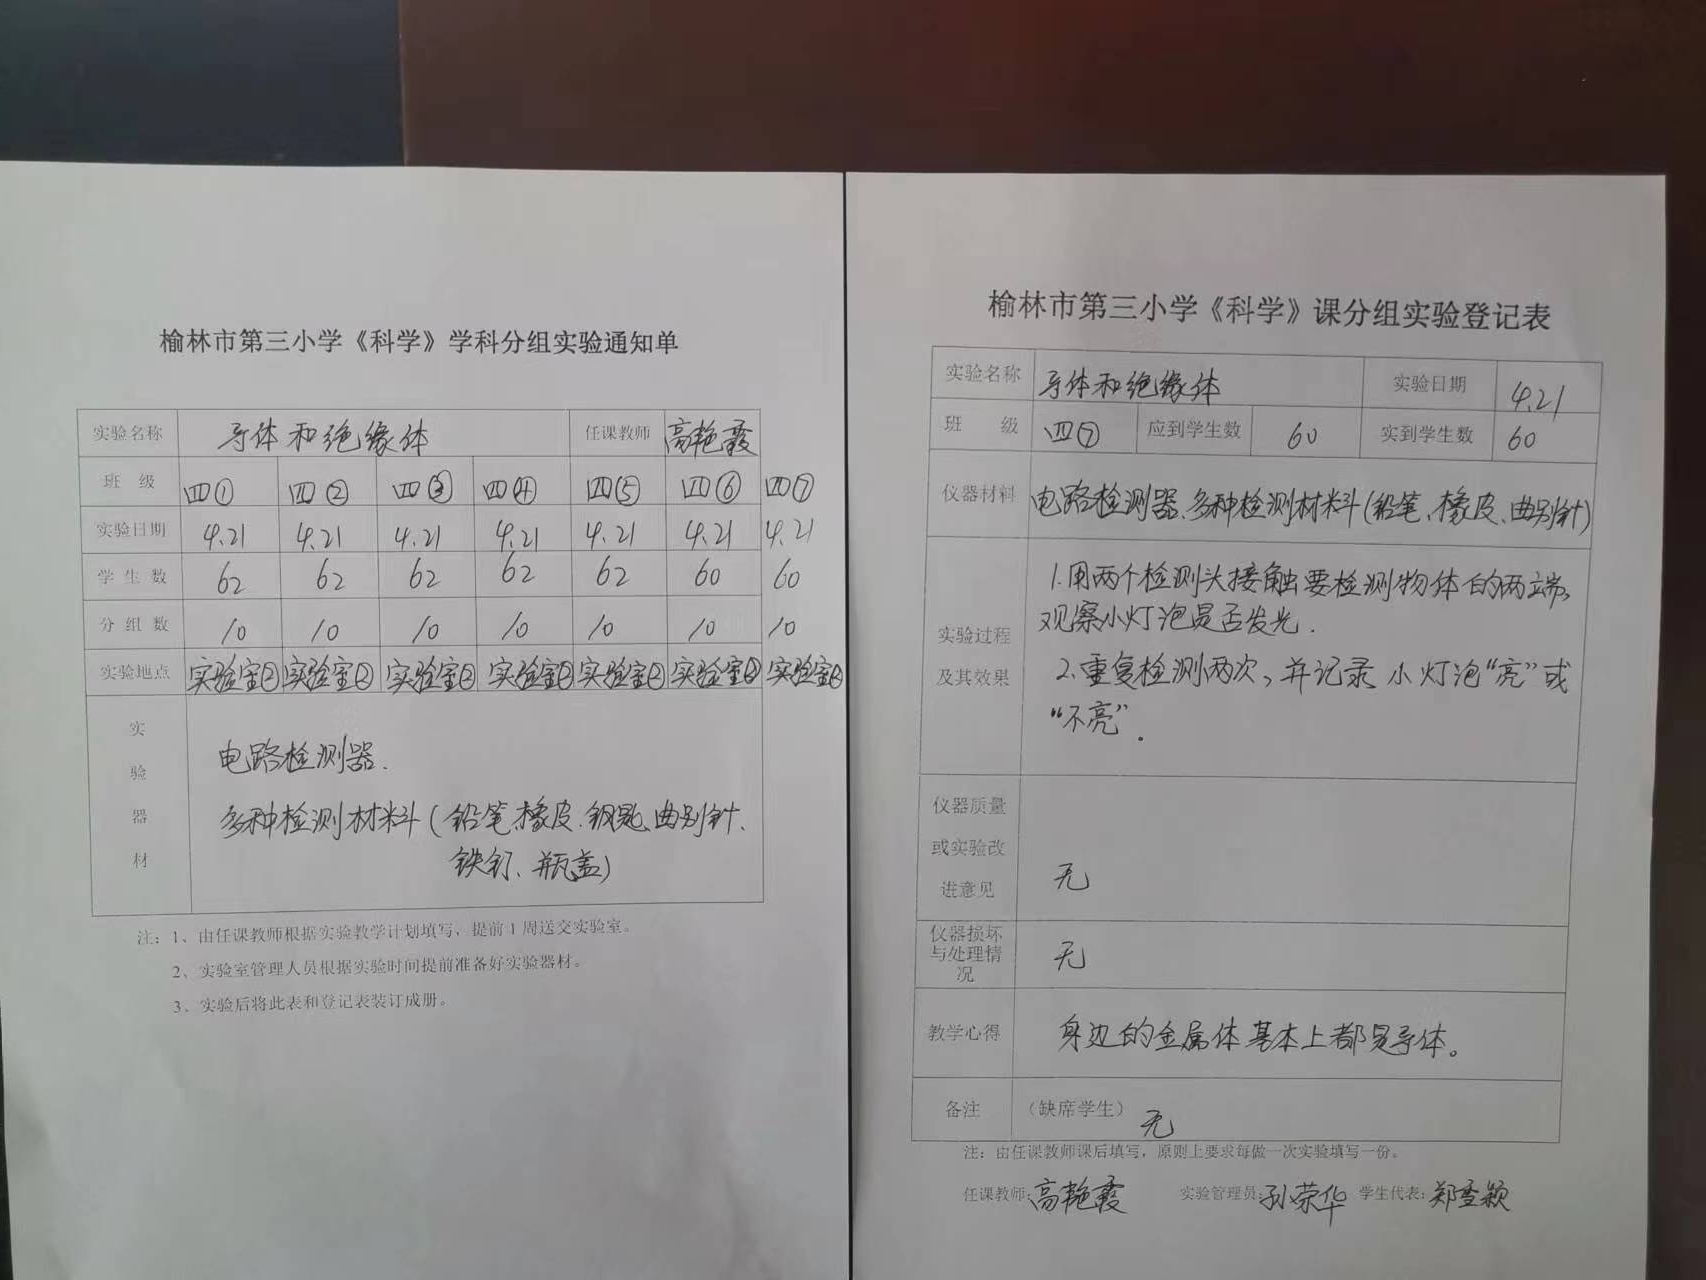 榆林市第三小学《科学》学科分组实验通知单
实验名称 导体和绝缘体 任课教师 高艳霞
班 级 四① 四② 四③ 四④ 四⑤ 四⑥ 四⑦
实验日期 4.21 4.21 4.21 4.21 4.21 4.21 4.21
学 生 数 62 62 62 62 62 60 60
分 组 数 10 10 10 10 10 10 10
实验地点 实验室② 实验室② 实验室② 实验室② 实验室② 实验室② 实验室②
实验器材
电路检测器.
多种检测材料(铅笔、橡皮、钥匙、曲别针、
铁钉、瓶盖)
注：1、由任课教师根据实验教学计划填写，提前1周送交实验室。
2、实验室管理人员根据实验时间提前准备好实验器材。
3、实验后将此表和登记表装订成册。
榆林市第三小学《科学》课分组实验登记表
实验名称 导体和绝缘体 实验日期 4.21
班 级 四⑦ 应到学生数 60 实到学生数 60
仪器材料 电路检测器、多种检测材料(铅笔、橡皮、曲别针)
实验过程
及其效果
1.用两个检测头接触要检测物体的两端,
观察小灯泡是否发光.
2.重复检测两次,并记录小灯泡“亮”或
“不亮”.
仪器质量
或实验改
进意见
无
仪器损坏
与处理情
况
无
教学心得 身边的金属体基本上都是导体。
备注 （缺席学生） 无
注：由任课教师课后填写，原则上要求每做一次实验填写一份。
任课教师:高艳霞 实验管理员:孙荣华 学生代表:郑雪颖